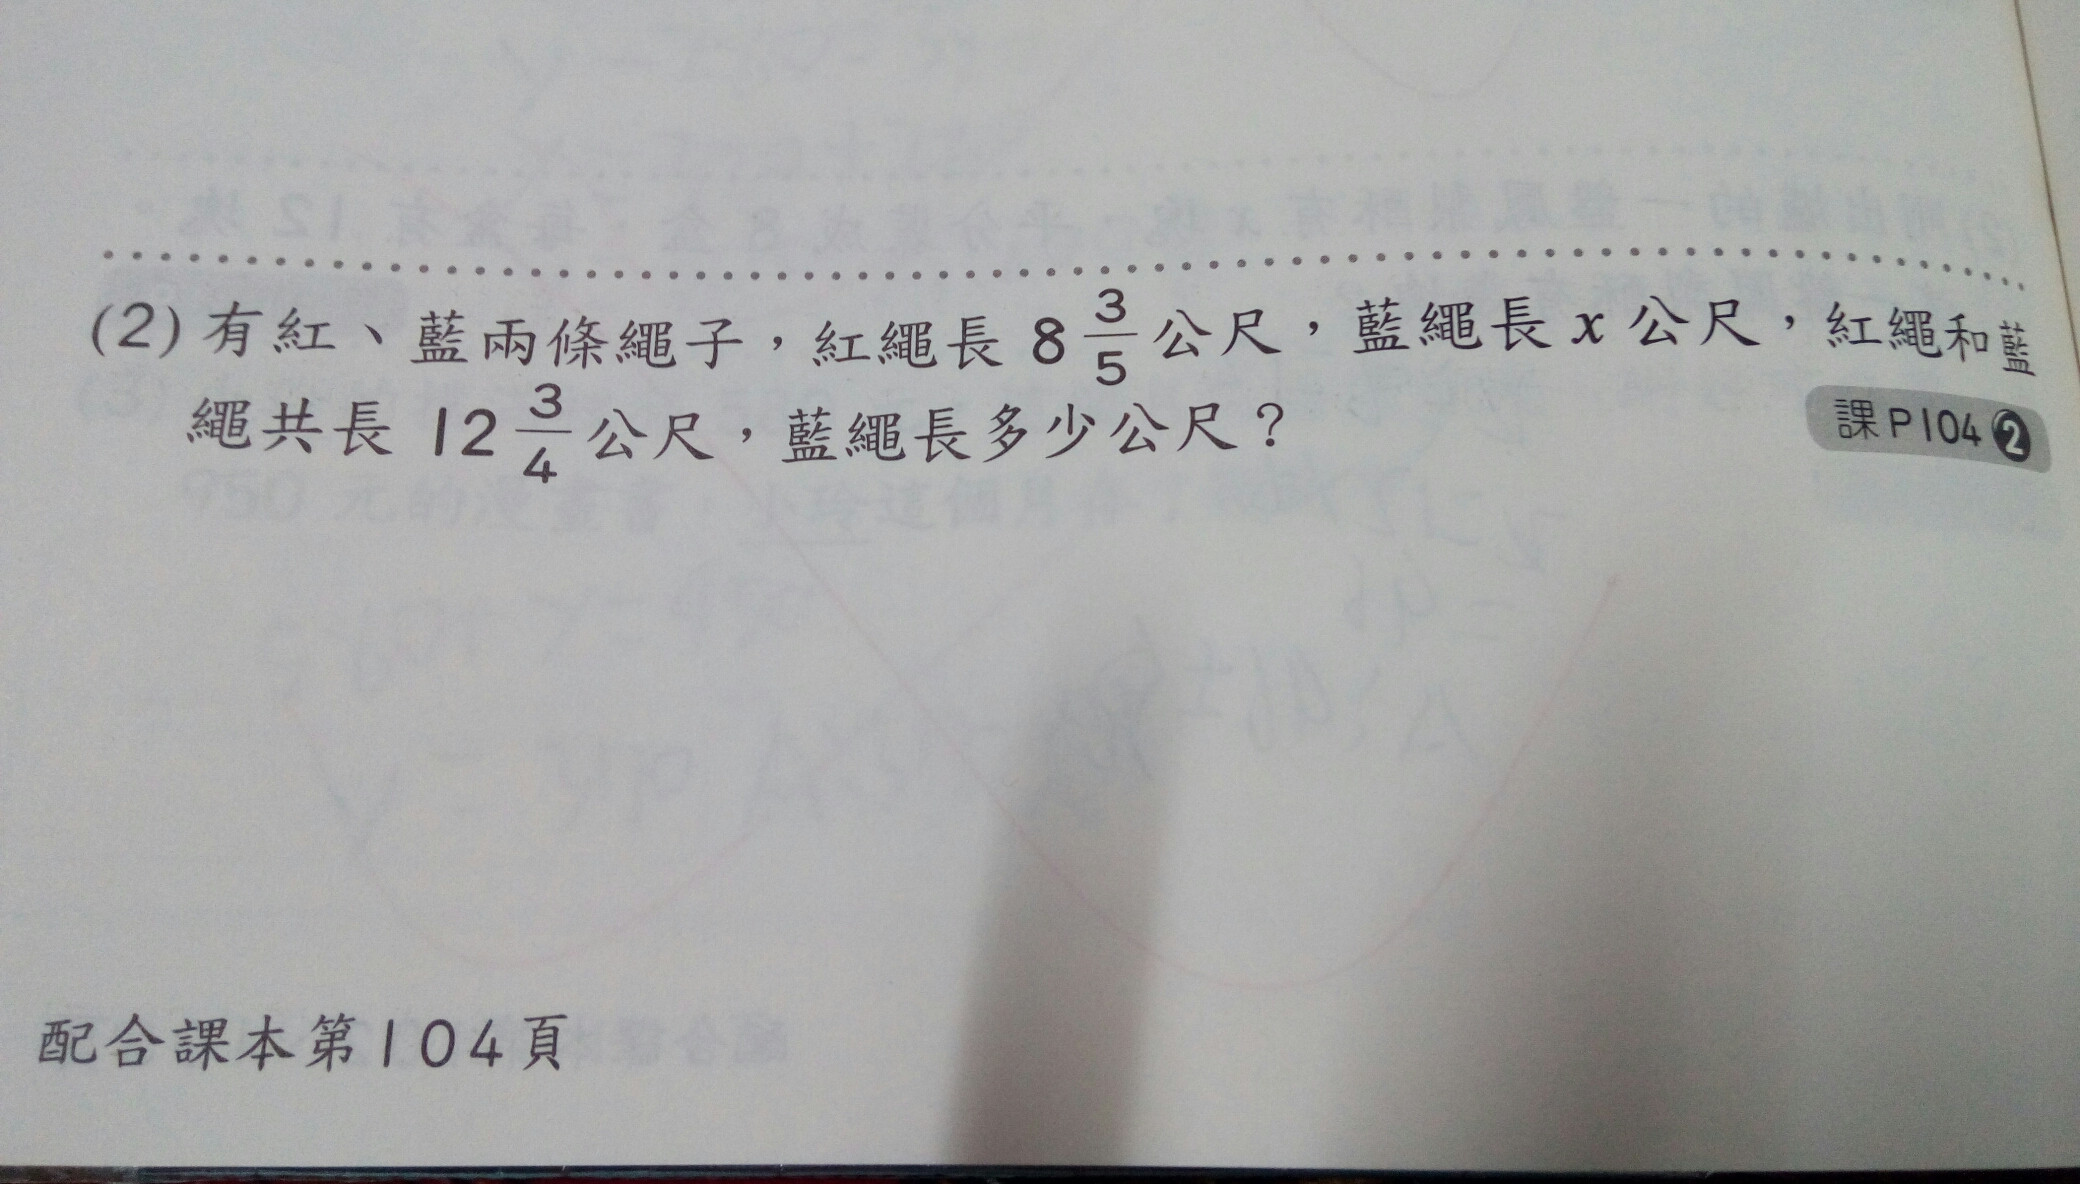 (2) 有紅、藍兩條繩子，紅繩長 8 3/5 公尺，藍繩長 x 公尺，紅繩和藍
繩共長 12 3/4 公尺，藍繩長多少公尺？
課P104❷
配合課本第104頁